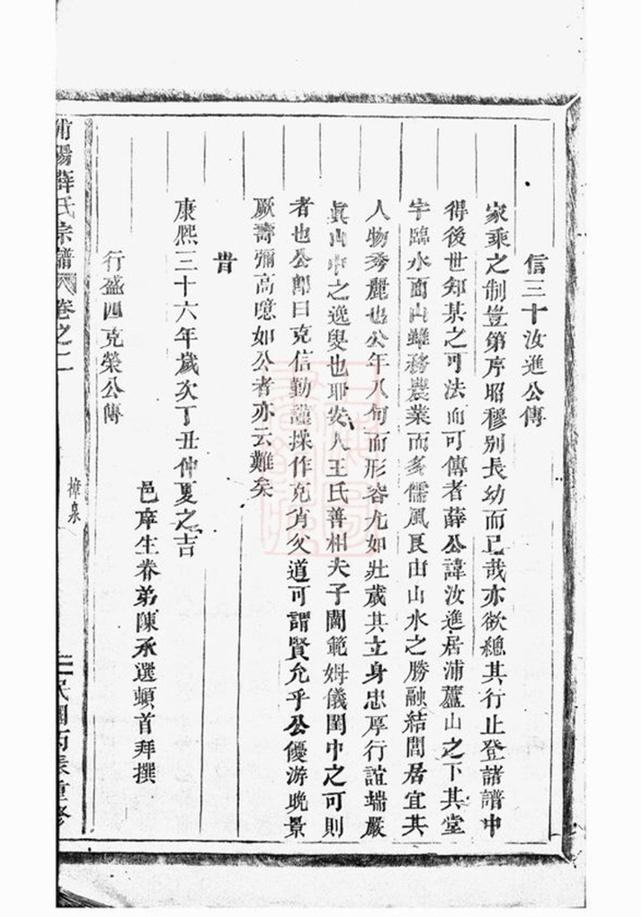 信三十汝進公傳
家乘之制豈第序昭穆別長幼而已哉亦欲總其行止登諸譜中
得後世知某之可法而可傳者薛公諱汝進居浦蘆山之下其堂
宇臨水面山雖務農業而多儒風良由山水之勝融結閒居宜其
人物秀麗也公年八旬而形容尤如壯歲其立身忠厚行誼端嚴
真山中之逸叟也耶安人王氏善相夫子閫範姆儀閨中之可則
者也公郎曰克信勤謹操作克肖父道可謂賢允乎公優游晚景
厥壽彌高噫如公者亦云難矣
旹
康熙三十六年歲次丁丑仲夏之吉
邑庠生眷弟陳承選頓首拜撰
行盛四克榮公傳
浦陽薛氏宗譜 卷之二
樟泉
民國丙辰重修